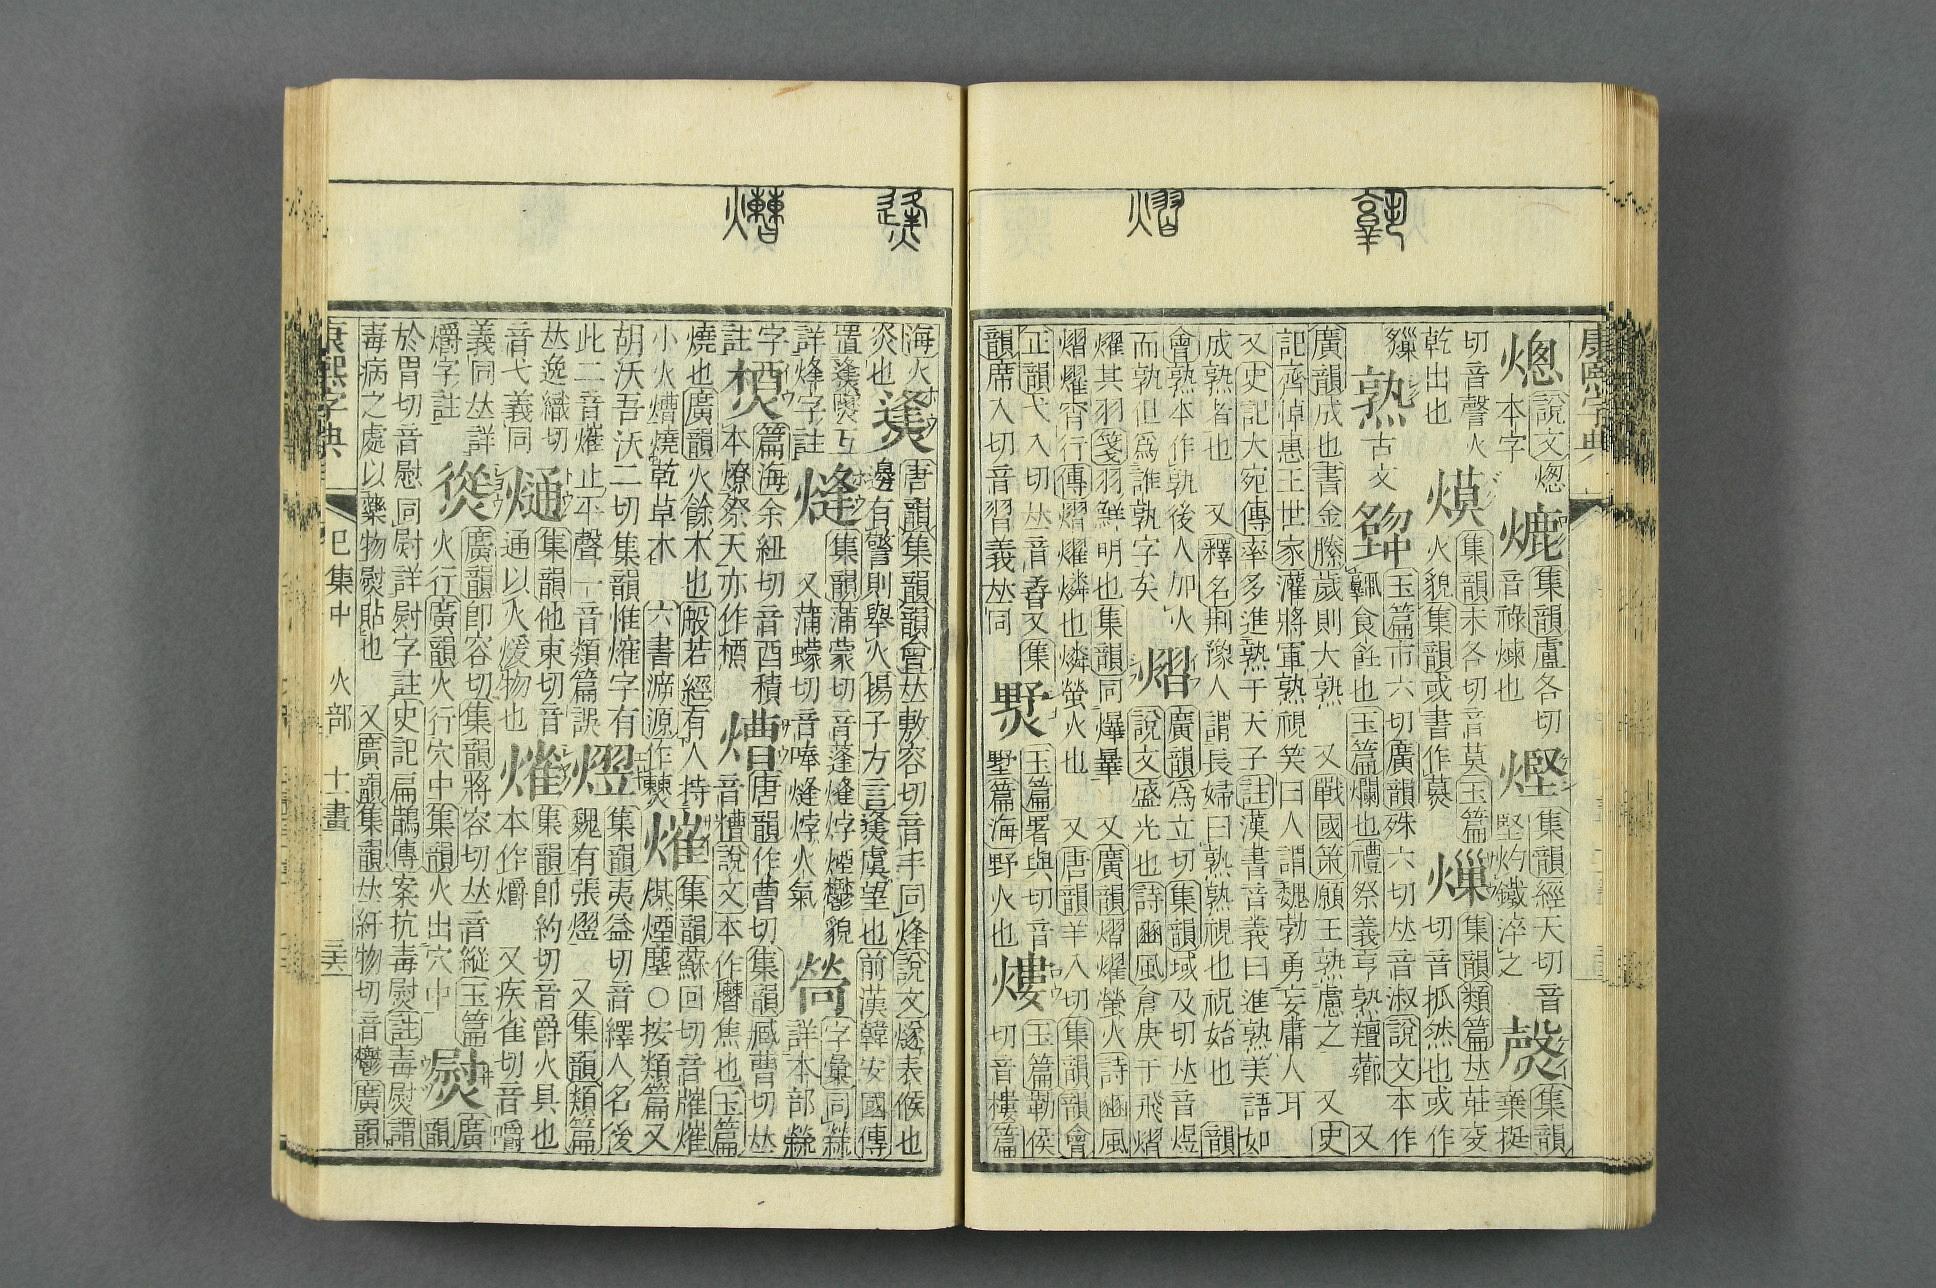 䡣 熠
㷭 㷮
康熙字典
熜 說文熜本字 熝 集韻盧各切音祿煉也 熞 集韻經天切音堅灼鐵淬之 漀 集韻棄挺
切音聲火乾出也 熯 集韻末各切音莫玉篇火貌集韻或書作㷬 㷅 集韻類篇𠀤莊交切音抓然也或作
熟 古文 玉篇市六切廣韻殊六切𠀤音淑說文本作食飪也玉篇爛也禮祭義亨熟羶薌 又
廣韻成也書金縢歲則大熟 又戰國策願王熟慮之 又史
記齊悼惠王世家灌將軍熟視笑曰人謂魏勃勇妄庸人耳
又史記大宛傳率多進熟于天子註漢書音義曰進熟美語如
成熟者也 又釋名荆豫人謂長婦曰熟熟祝也祝始也 韻
會熟本作孰後人加火而孰但爲誰孰字矣 熠 廣韻爲立切集韻域及切𠀤音煜說文盛光也詩豳風倉庚于飛熠
燿其羽箋羽鮮明也集韻同爗㬯 又廣韻熠燿螢火詩豳風
熠燿宵行傳熠燿燐也燐螢火也 又唐韻羊入切集韻韻會
正韻弋入切𠀤音 又集韻席入切音習義𠀤同 㷇 玉篇署與切音墅篇海野火也 熡 玉篇勒侯切音樓篇
海火炎也 㷭 唐韻集韻韻會𠀤敷容切音丰同烽說文燧表候也邊有警則舉火揚子方言㷭虞望也前漢韓安國傳
置㷭燧互詳烽字註 熢 集韻蒲蒙切音蓬熢㶿煙鬱貌 又蒲蠓切音唪熢㶿火氣 字彙同詳本部註
字註 槱 篇海余紐切音酉積木燎祭天亦作槱 熷 唐韻作曹切集韻臧曹切𠀤音糟說文本作㷮焦也玉篇
燒也廣韻火餘木也般若經有人持小火熷燒乾草木 六書㴑源作 熣 集韻蘇回切音熣煤煙塵○按類篇又
胡沃吾沃二切集韻惟熣字有此二音熣止平聲一音類篇誤 熤 集韻夷益切音繹人名後魏有張熤 又集韻類篇
𠀤逸織切音弋義同 熥 集韻他東切音通以火煖物也 㸈 集韻卽約切音爵火具也本作爝 又疾雀切音嚼
義同𠀤詳爝字註 熧 廣韻卽容切集韻將容切𠀤音縱玉篇火行廣韻火行穴中集韻火出穴中 熨 廣韻
於胃切音慰同尉詳尉字註史記扁鵲傳案抗毒熨註毒熨謂
毒病之處以藥物熨貼也 又廣韻集韻𠀤紆物切音鬱廣韻
康熙字典 巳集中 火部 十一畫 三六